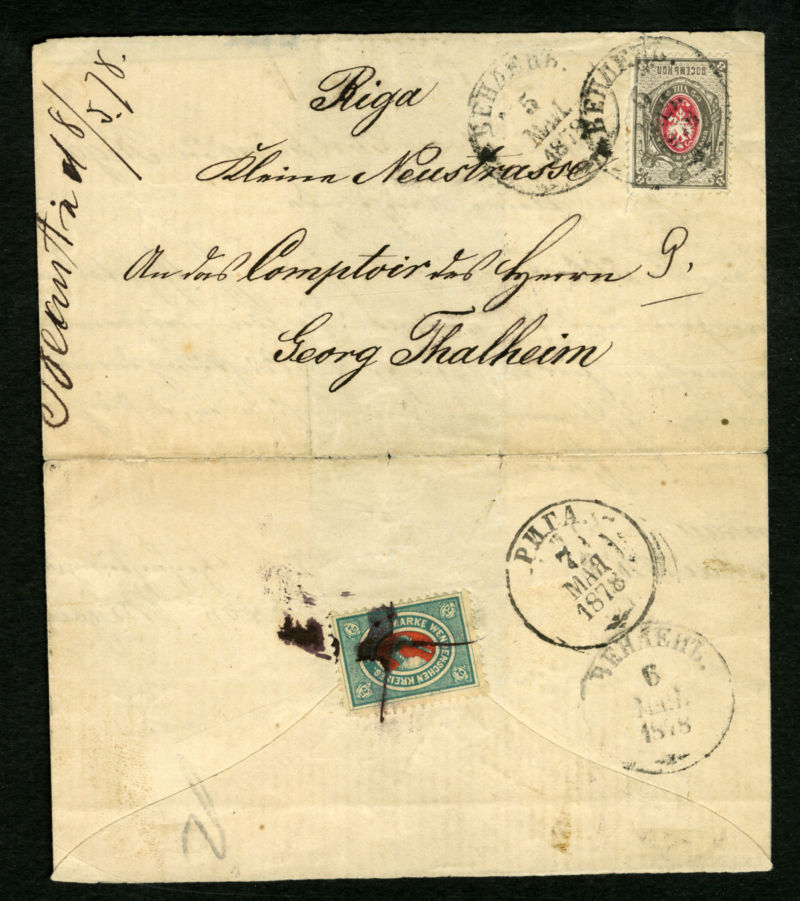 Riga
Kleine Neustrasse
An das Comptoir des Herrn
Georg Thalheim
8/5.78.
ВЕНДЕНЪ.
5
МАЯ
1878
ВЕНДЕНЪ.
ВОСЕМЬ КОП
РИГА.
7
МАЯ
1878
MARKE WENDENSCHEN KREISES
ВЕНДЕНЪ.
6
МАЯ
1878